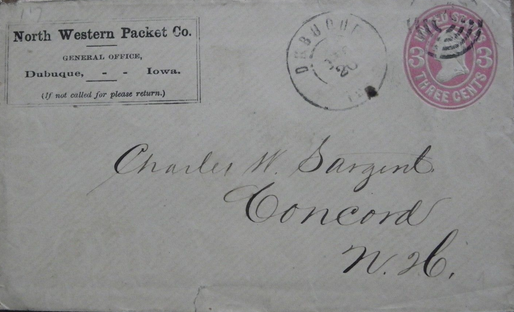 North Western Packet Co.
GENERAL OFFICE,
Dubuque, - - Iowa.
(If not called for please return.)
DUBUQUE
3 3
THREE CENTS
Charles W. Sargent
Concord
N. H.